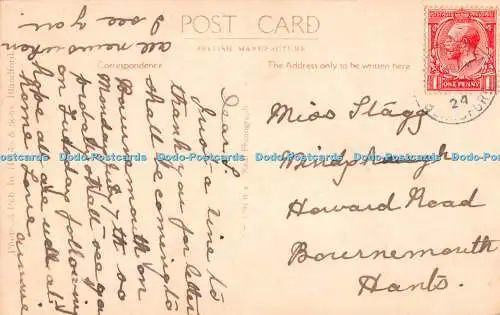 POST CARD
BRITISH MANUFACTURE
Correspondence
The Address only to be written here
ONE PENNY
24
Dear
Just a line to
thank you for letter
shall be coming to
Bournemouth on
Monday July 7th so
shall see you
on Tuesday following
hope all are well at
home Love
annie
all news when
I see you
Miss Stagg
Howard Road
Bournemouth
Hants.
Dodo-Postcards Dodo-Postcards Dodo-Postcards Dodo-Postcards Dodo-Postcards Dodo-Postcards